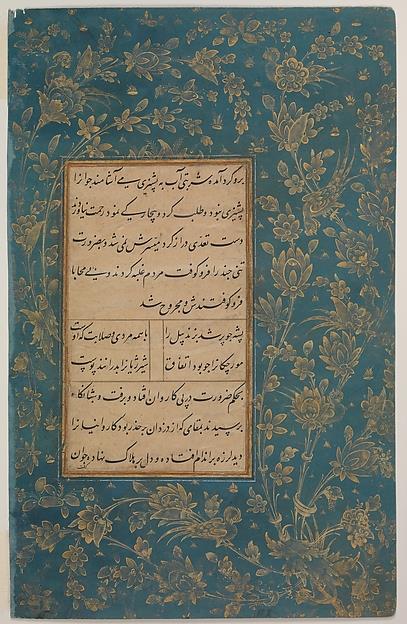 برو گرد آمده و شربتی آب به پشیزی همی آشامند جوانرا
پشیزی نبود و طلب کرد و بیچارگی نمود رحمت نیاوردند
دست تعدی دراز کرد میسرش نمی شد و بضرورت
تنی چند را فرو کوفت مردم غلبه کردند و بی محابا
فرو کوفتندش و مجروح شد
پشه چو پر شد بزند پیل را با همه مردی و صلابت که اوست
مورچگانرا چو بود اتفاق شیر ژیانرا بدرانند پوست
بحکم ضرورت در پی کاروان افتاد و برفت و شبانگاه
برسیدند بمقامی که از دزدان بر حذر بود کاروانیانرا
دید لرزه بر اندام افتاده و دل بر هلاک نهاده جوان